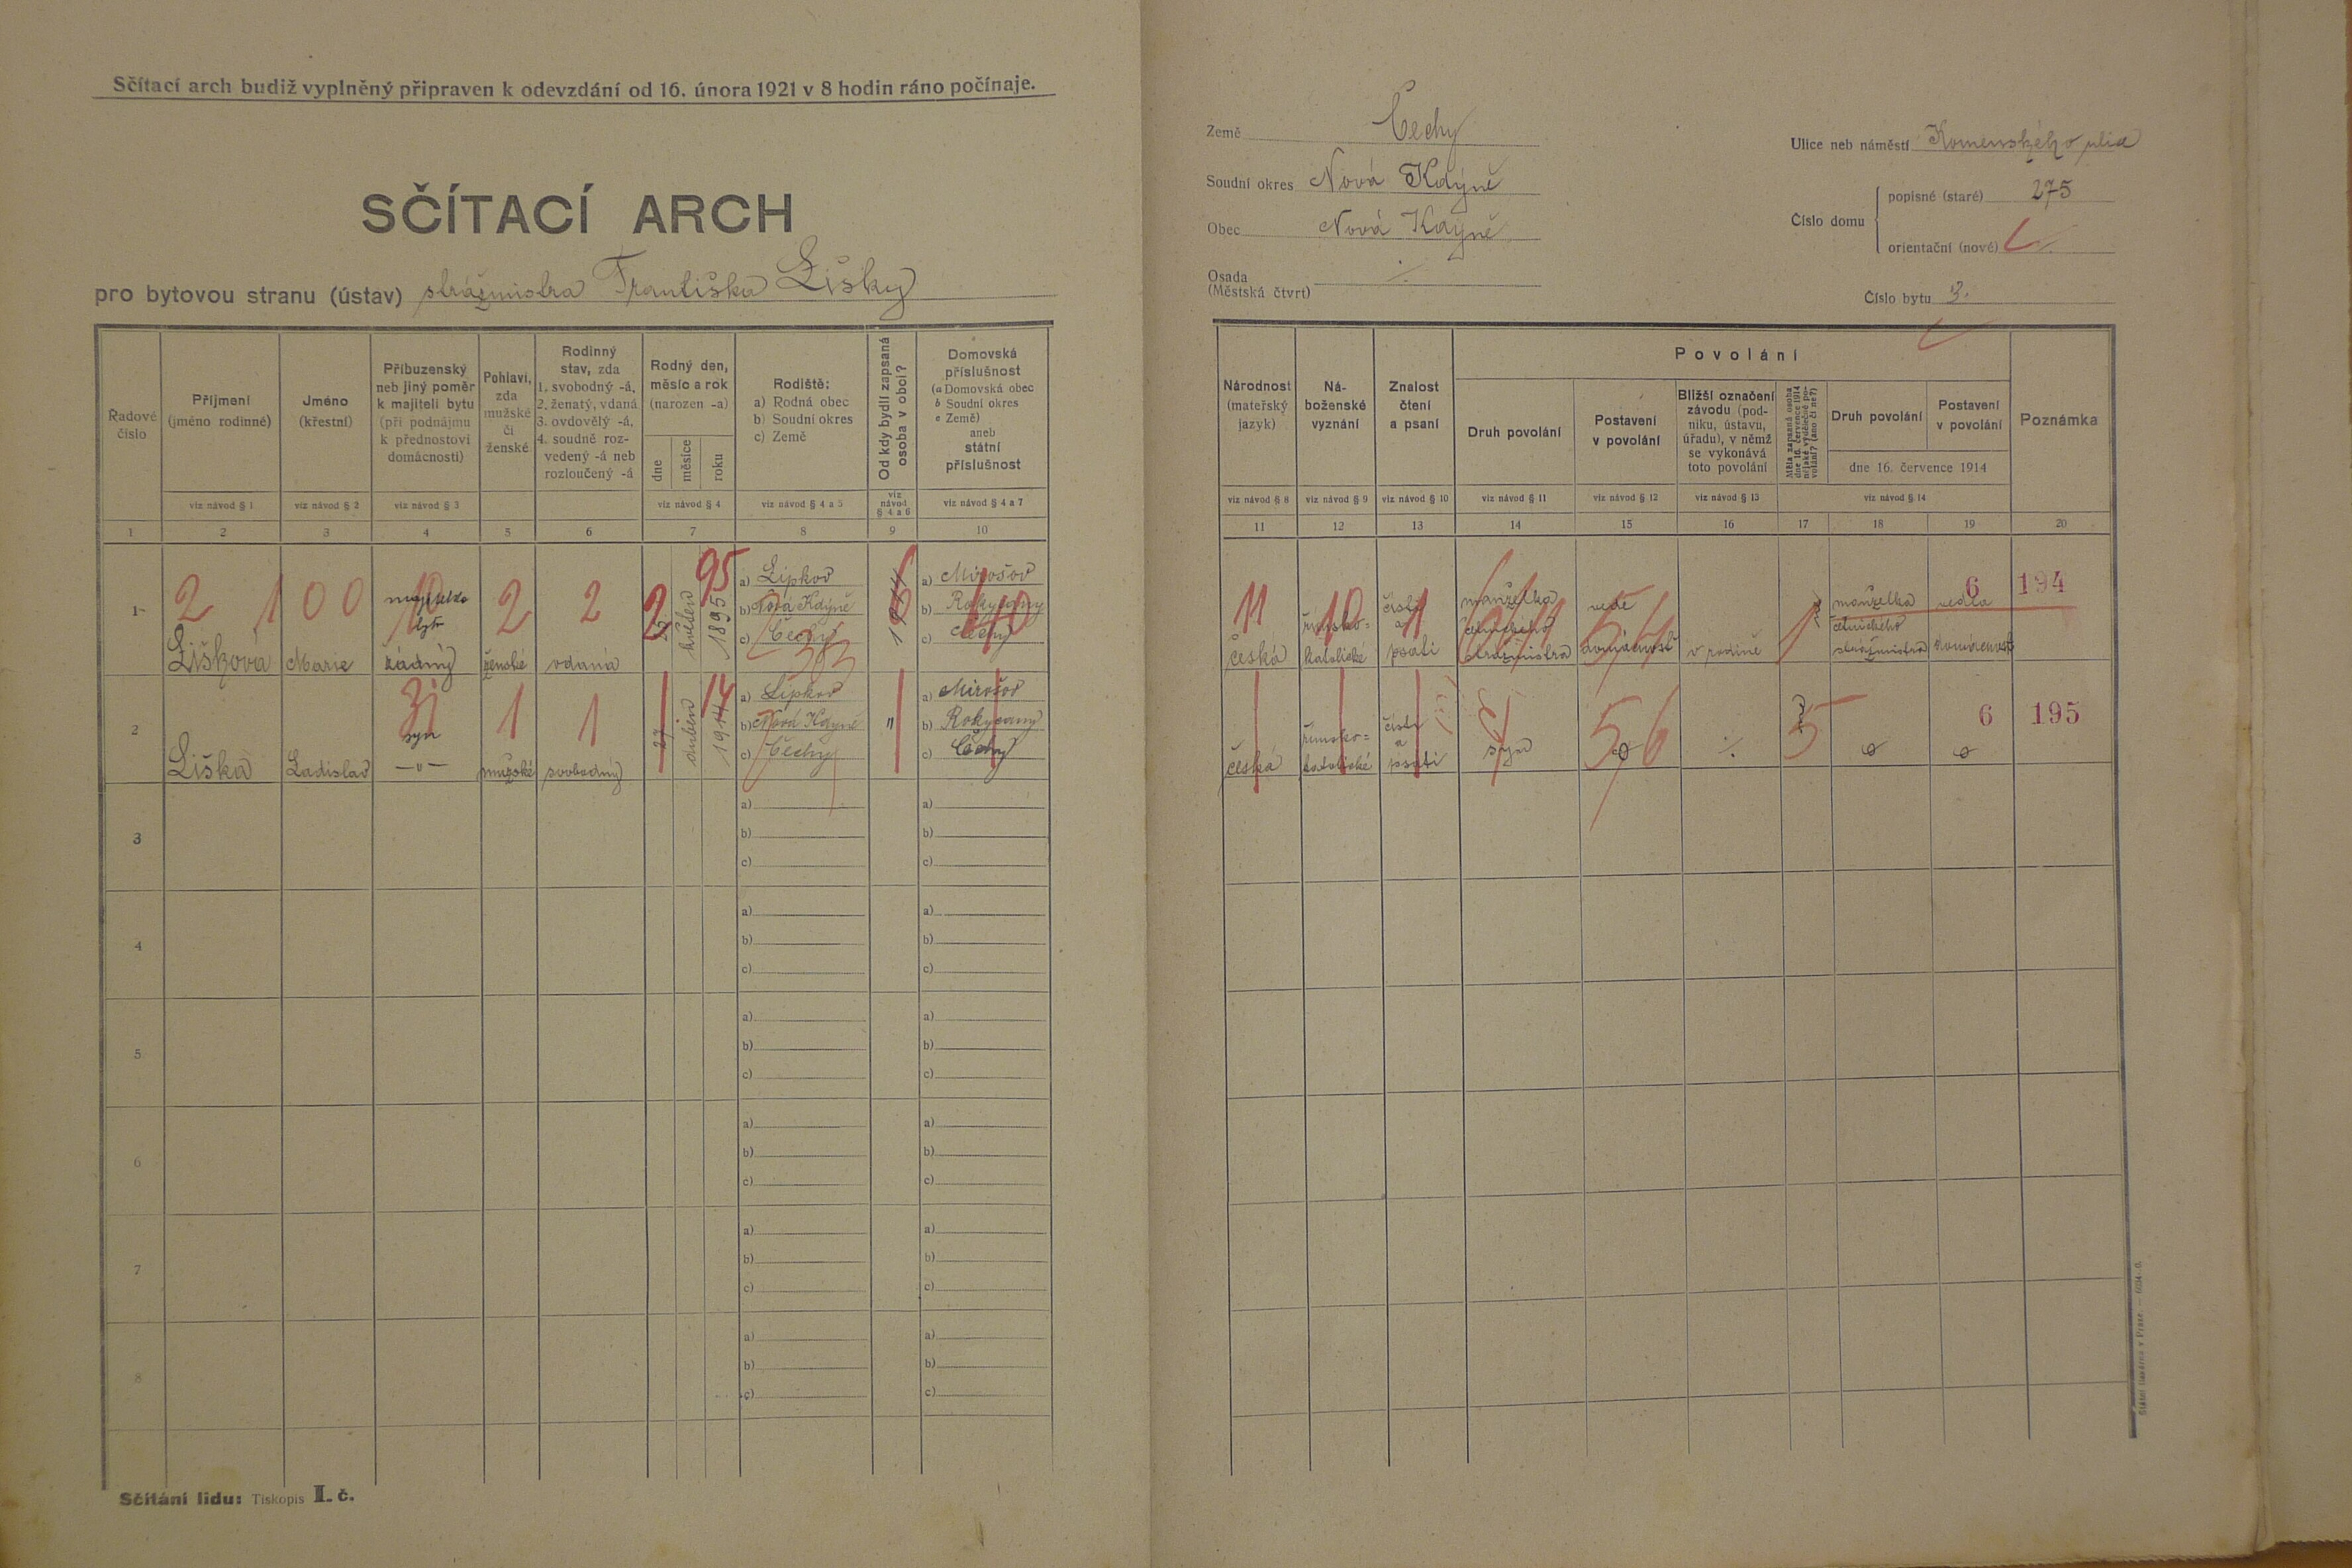 Sčítací arch budiž vyplněný připraven k odevzdání od 16. února 1921 v 8 hodin ráno počínaje.
SČÍTACÍ ARCH
pro bytovou stranu (ústav) strážmistra Františka Lišky
Země Čechy
Soudní okres Nová Kdýně
Obec Nová Kdýně
Osada
(Městská čtvrt)
Ulice neb náměstí Komenského ulice
Číslo domu
popisné (staré) 275
orientační (nové)
Číslo bytu 3.
Řadové číslo
Příjmení (jméno rodinné)
Jméno (křestní)
Příbuzenský neb jiný poměr k majiteli bytu (při podnájmu k přednostovi domácnosti)
Pohlaví, zda mužské či ženské
Rodinný stav, zda 1. svobodný -á, 2. ženatý, vdaná 3. ovdovělý -á, 4. soudně rozvedený -á neb rozloučený -á
Rodný den, měsíc a rok (narozen -a)
dne měsíce roku
Rodiště: a) Rodná obec b) Soudní okres c) Země
Od kdy bydlí zapsaná osoba v obci?
Domovská příslušnost (a Domovská obec b Soudní okres c Země) aneb státní příslušnost
viz návod § 1 viz návod § 2 viz návod § 3 viz návod § 4 viz návod § 4 a 5 viz návod § 4 a 6 viz návod § 4 a 7
1 2 3 4 5 6 7 8 9 10
Národnost (mateřský jazyk)
Náboženské vyznání
Znalost čtení a psaní
Povolání
Druh povolání
Postavení v povolání
Bližší označení závodu (podniku, ústavu, úřadu), v němž se vykonává toto povolání
Měla zapsaná osoba dne 16. července 1914 nějaké výdělečné povolání? (ano či ne?)
Druh povolání
Postavení v povolání
dne 16. července 1914
Poznámka
viz návod § 8 viz návod § 9 viz návod § 10 viz návod § 11 viz návod § 12 viz návod § 13 viz návod § 14
11 12 13 14 15 16 17 18 19 20
1 Lišková Marie majitelka bytu žádný ženské vdaná květen 1895
a) Lipkov
b) Nová Kdýně
c) Čechy
a) Mirošov
b) Rokycany
c) Čechy
2 100 10 2 2 2 95 6
česká římsko-katolické čísti a psati manželka četnického strážmistra vede domácnost v rodině manželka četnického strážmistra vedla domácnost
11 10 1 6 194
2 Liška Ladislav syn mužské svobodný 27 duben 1914
a) Lipkov
b) Nová Kdýně
c) Čechy
"
a) Mirošov
b) Rokycany
c) Čechy
31 1 1 14
česká římsko-katolické čísti a psati syn
56 5 6 195
3 a) b) c) a) b) c)
4 a) b) c) a) b) c)
5 a) b) c) a) b) c)
6 a) b) c) a) b) c)
7 a) b) c) a) b) c)
8 a) b) c) a) b) c)
Sčítání lidu: Tiskopis I. č.